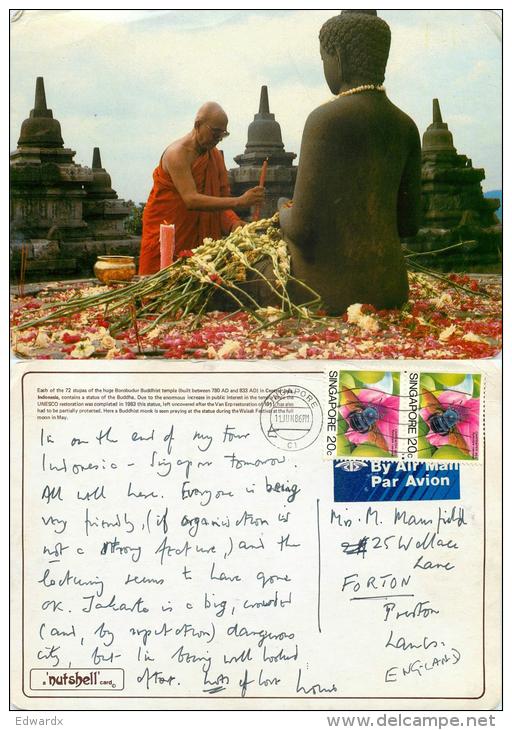 Each of the 72 stupas of the huge Borobudur Buddhist temple (built between 780 AD and 833 AD) in Central
Indonesia, contains a status of the Buddha. Due to the enormous increase in public interest in the temple since the
UNESCO restoration was completed in 1983 this status, left uncovered after the Van Erp restoration of 1911, has also
had to be partially protected. Here a Buddhist monk is seen praying at the status during the Waisak Festival at the full
moon in May.
SINGAPORE
11 JUN 86 PM
C1
SINGAPORE 20c
SINGAPORE 20c
By Air Mail
Par Avion
I'm on the end of my tour
Indonesia - Singapore tomorrow.
All well here. Everyone is being
very friendly, (if organisation is
not a strong feature,) and the
lecturing seems to have gone
OK. Jakarta is a big, crowded
(and, by reputation) dangerous
city, but I'm being well looked
after. Lots of love
Mrs. M. Mansfield
25 Wallace
Lane
FORTON
Preston
Lancs.
ENGLAND
a 'nutshell' card ©
Edwardx
http://www.delcampe.net